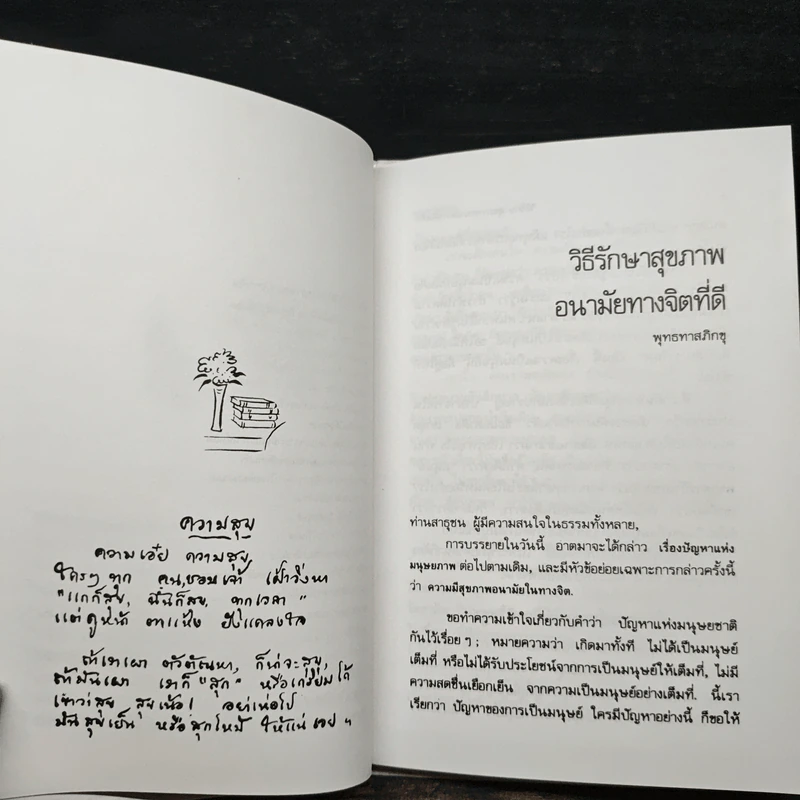 ความสุข
ความเอ๋ย ความสุข
ใครๆ ทุก คน, ชอบเจ้า เฝ้าวิ่งหา
"แกก็สุข, ฉันก็สุข, ทุกเวลา"
แต่ดูหน้า ตาแห้ง ยังแคลงใจ
ถ้าเราเผา ตัวตัณหา, ก็น่าจะสุข,
ถ้ามันเผา เราก็ "สุก" หรือเกรียมได้
เขาว่าสุข สุขเน้อ! อย่าเห่อไป
มันสุขเย็น หรือสุกไหม้ ให้แน่เอย ฯ
วิธีรักษาสุขภาพ
อนามัยทางจิตที่ดี
พุทธทาสภิกขุ
ท่านสาธุชน ผู้มีความสนใจในธรรมทั้งหลาย,
การบรรยายในวันนี้ อาตมาจะได้กล่าว เรื่องปัญหาแห่ง
มนุษยภาพ ต่อไปตามเดิม, และมีหัวข้อย่อยเฉพาะการกล่าวครั้งนี้
ว่า ความมีสุขภาพอนามัยในทางจิต.
ขอทำความเข้าใจเกี่ยวกับคำว่า ปัญหาแห่งมนุษยชาติ
กันไว้เรื่อย ๆ; หมายความว่า เกิดมาทั้งที ไม่ได้เป็นมนุษย์
เต็มที่ หรือไม่ได้รับประโยชน์จากการเป็นมนุษย์ให้เต็มที่, ไม่มี
ความสดชื่นเยือกเย็น จากความเป็นมนุษย์อย่างเต็มที่. นี้เรา
เรียกว่า ปัญหาของการเป็นมนุษย์ ใครมีปัญหาอย่างนี้ ก็ขอให้